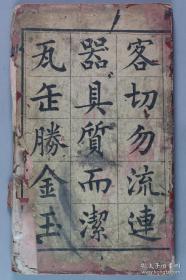 客切勿流連
器具質而潔
瓦缶勝金玉